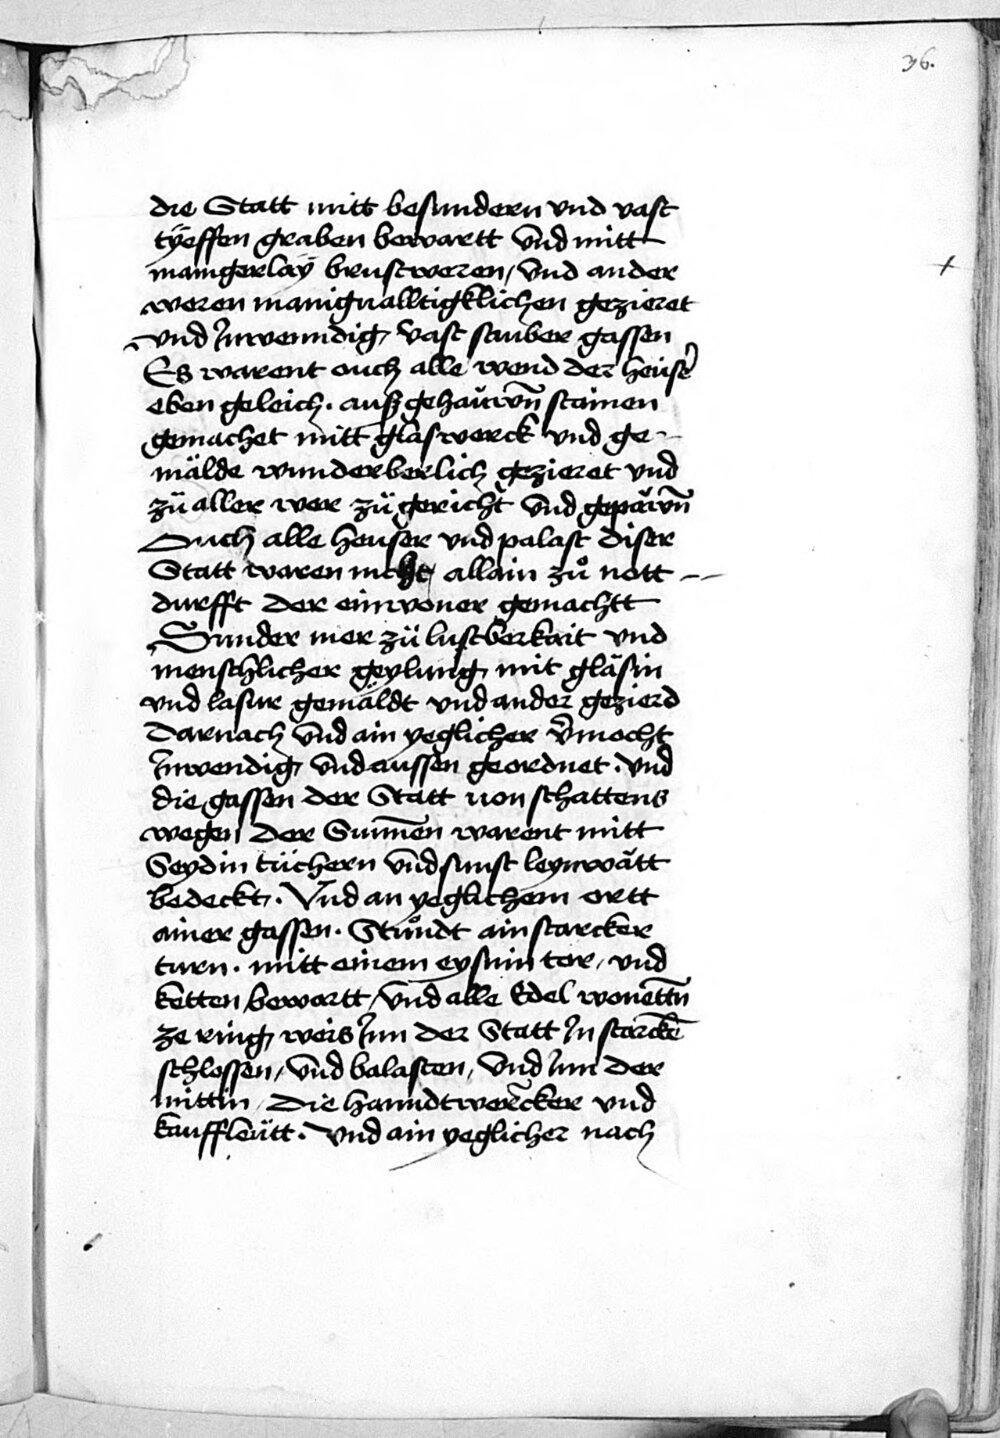 36.
die Statt mitt besundern vnd vast
tÿeffen graben bewartt vnd mitt
maingerlaÿ brustweren / vnd ander
weren manigualltigklichen gezieret
vnd Inwenndig, vast sauber gassen
Es warent ouch alle wend der heüser
eben geleich. auß gehaŭwn̄ stainen
gemachet mitt glaswerck vnd ge-
mälde wunderberlich gezieret vnd
zü aller wer zü gericht vnd gepaŭwn̄
Ouch alle heuser vnd palast diser
Statt waren nicht allain zů nott --
durfft der einwoner gemachtt
Sunder mer zü lustberkait vnd
menschlicher geylung, mit gläsin
vnd lasur gemäldt vnd ander gezierd
darnach vnd ain yeglicher v̄mocht
Inwendig, vnd aussen geordnet. vnd
die gassen der Statt von schattens
wegen der Sunn̄en warent mitt
Seydin tüchern vnd sunst leynwätt
bedeckt. Vnd an yeglichem ortt
ainer gassen. Stůndt ain starcker
turn. mitt einem eysnin tor, vnd
ketten bewartt / vnd alle Edel wonettn̄
ze ring, weis Inn der Statt In starckē
schlossen / vnd balasten, vnd Inn der
mittin, die hanndtwercker vnd
kauffleütt. vnd ain yeglicher nach